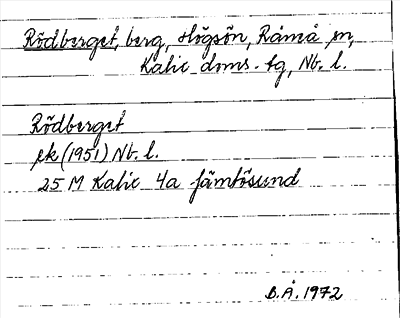 Rödberget, berg, Högsön, Råneå sn,
Kalix doms. tg, Nb. l.
Rödberget
ek (1951) Nb. l.
25 M Kalix 4a Jämtösund
B.Å. 1972